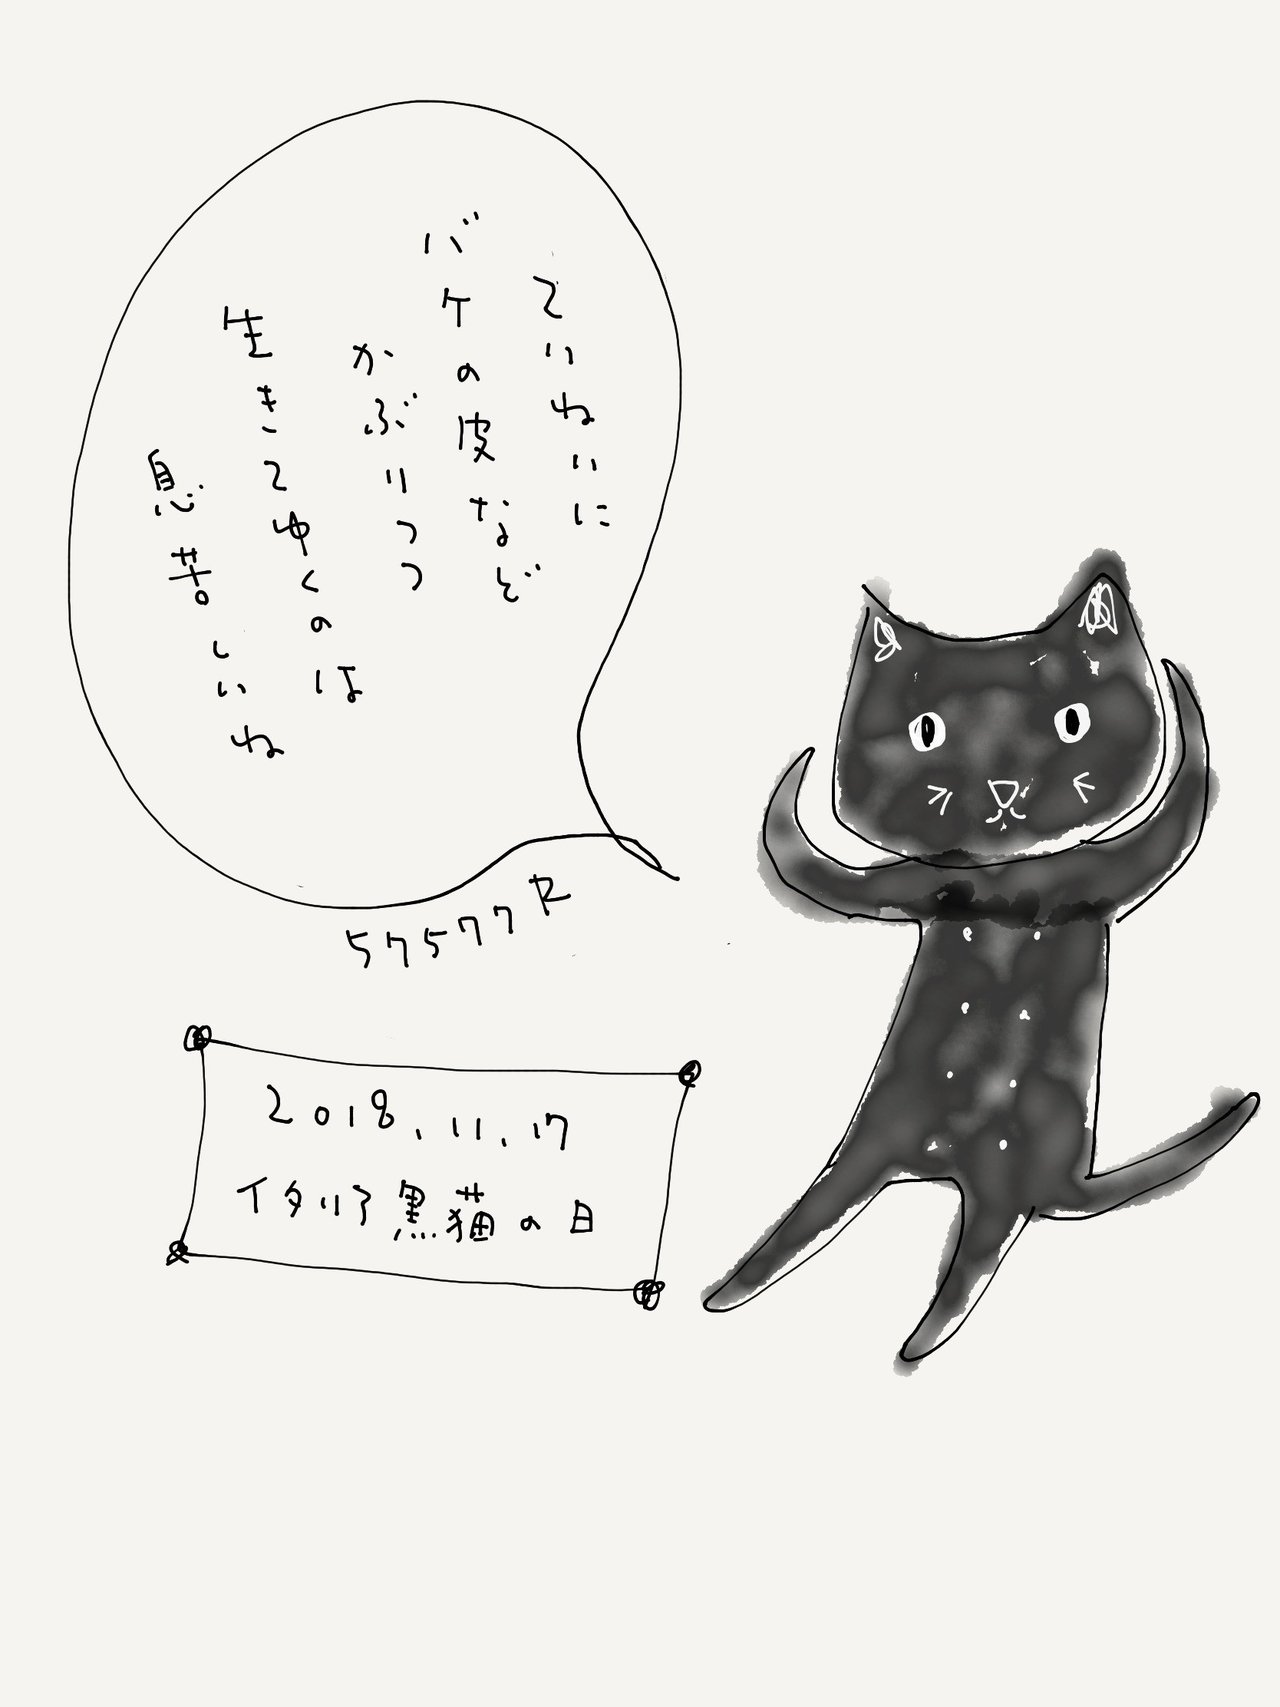 ていねいに
バケの皮など
かぶりつつ
生きてゆくのは
息苦しいね
57577 R
2018.11.17
イタリア黒猫の日